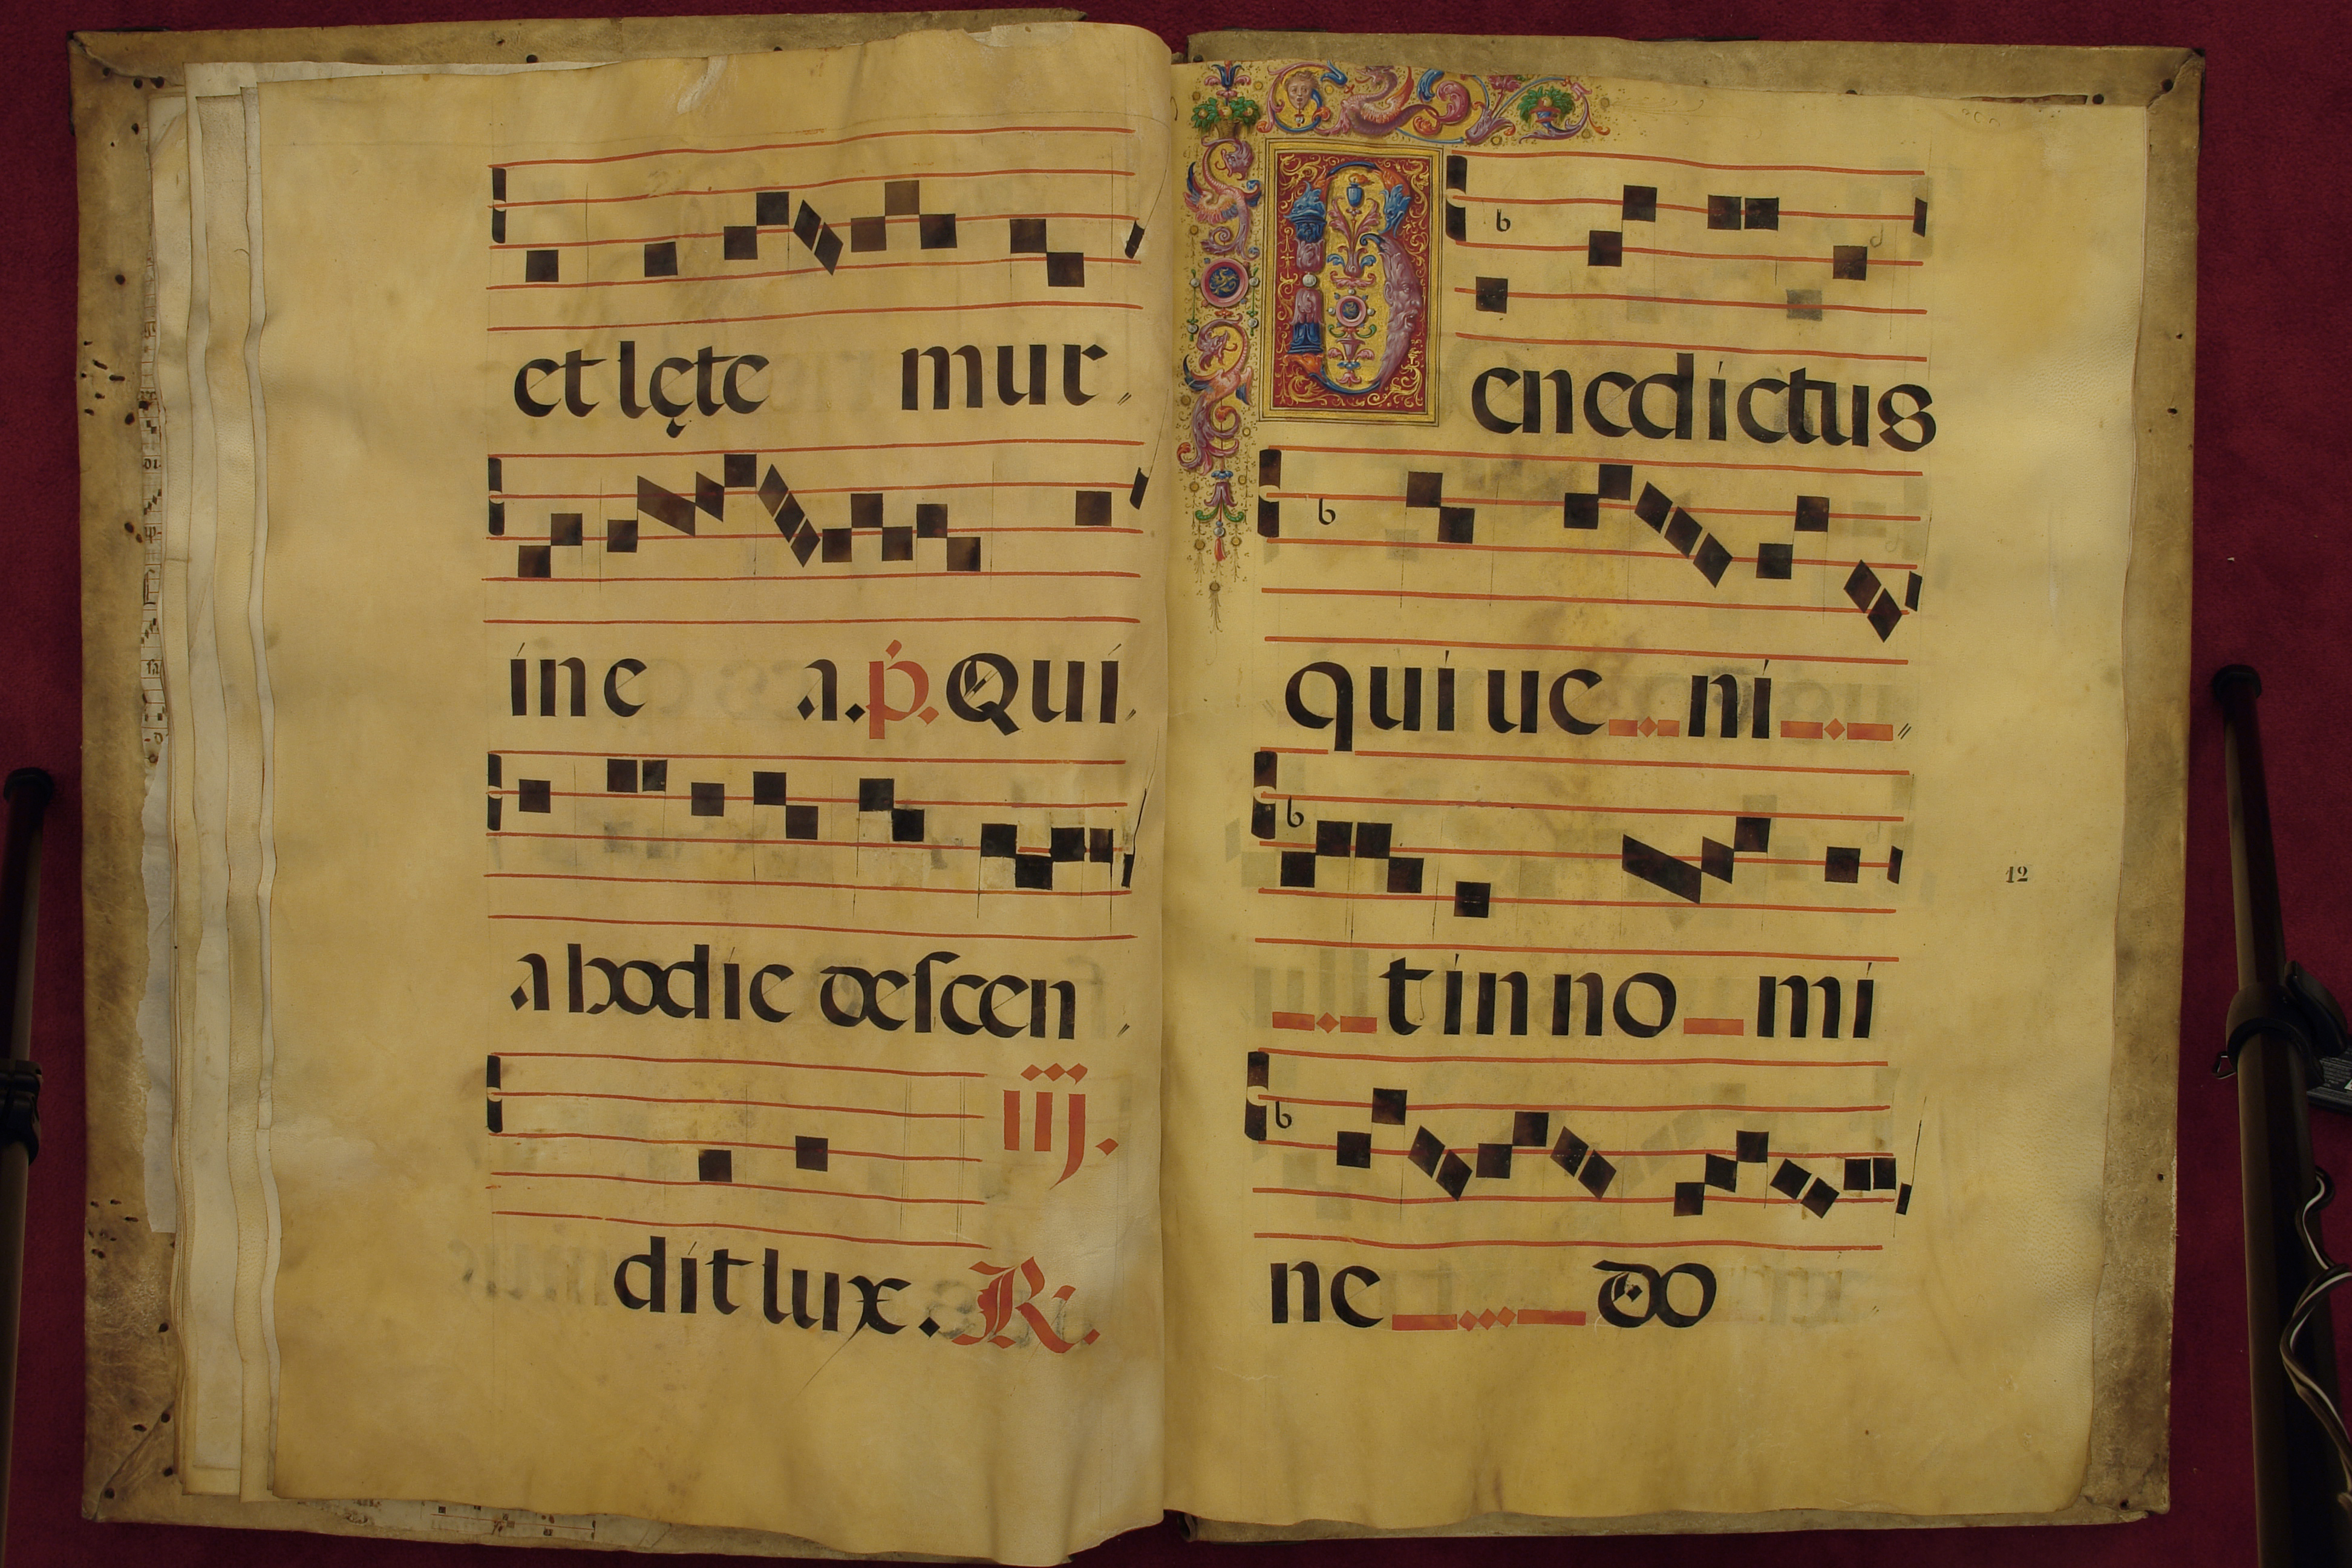 et lęte mur
ine a. p. Qui
a hodie descen
iij.
dit lux. R.
Benedictus
qui ue ni
12
t in no mi
ne do